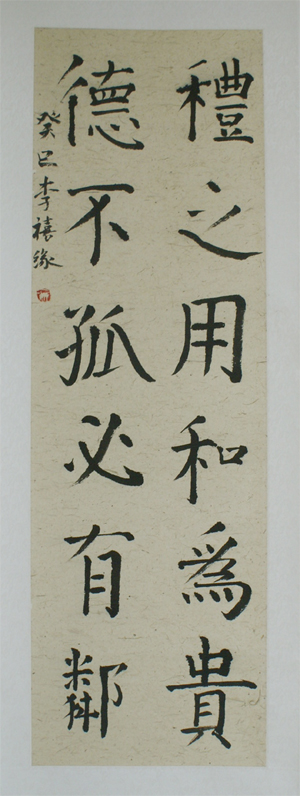 禮之用和爲貴
德不孤必有鄰
癸巳李禧緣